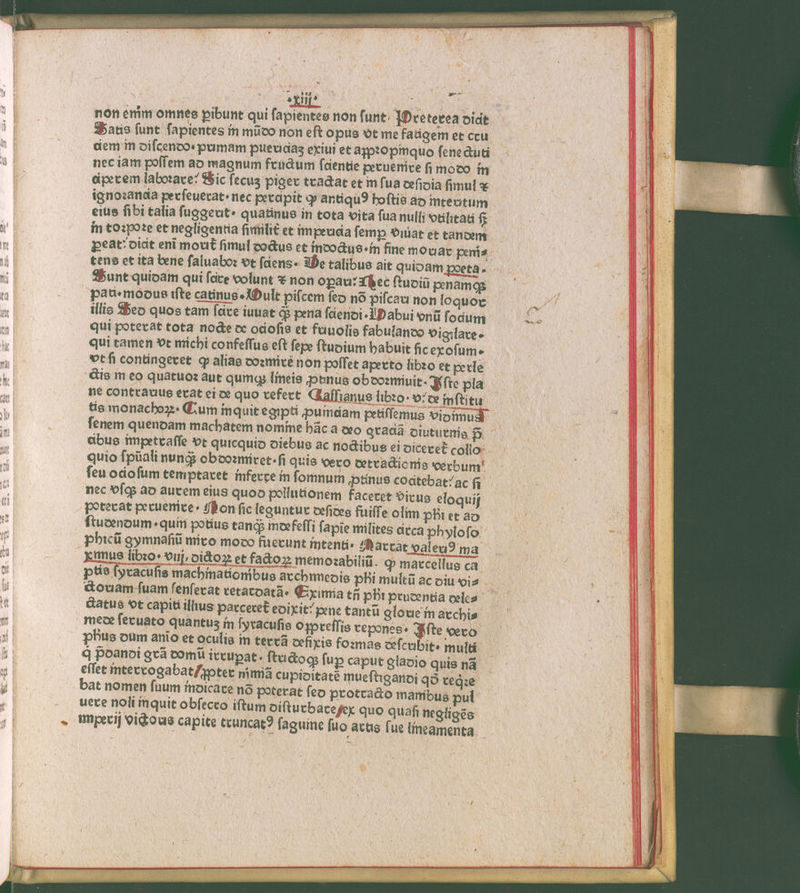 •xiij•
non enim omnes ꝑibunt qui ſapientes non ſunt. Preterea dicit
Satis ſunt ſapientes in mūdo non eſt opus vt me fatigem et cru
ciem in diſcendo. primam pueriaꝫ exiui et appropinquo ſenectuti
nec iam poſſem ad magnum fructum ſcientie peruenire ſi modo in
ciperem laborare: Sic ſecus piger tractat et in ſua deſidia ſimul ⁊
ignorancia perſeuerat. nec percipit ꝙ antiquꝰ hoſtis ad interitum
eius ſibi talia ſuggerit. quatinus in tota vita ſua nulli vtilitati ſꝫ
in torpore et negligentia ſimilit̄ et imperitia ſemꝑ viuat et tandem
ꝑeat: dicit enī morit̄ ſimul doctus et indoctus. in fine moriar peni⸗
tens et ita bene ſaluabor vt ſciens. De talibus ait quidam poeta.
Sunt quidam qui ſcire volunt ⁊ non oꝑari: Nec ſtudiū penamqꝫ
pati. modus iſte catinus. Vult piſcem ſed nō piſcari non loquor
illis Sed quos tam ſcire iuuat qꝫ̄ pena ſciendi. Habui vnū ſocium
qui poterat tota nocte de ocioſis et friuolis fabulando vigilare.
qui tamen vt michi confeſſus eſt ſepe ſtudium habuit ſic exoſum.
vt ſi contingeret ꝙ alias dormire non poſſet aperto libro et perle
ctis in eo quatuor aut quinqꝫ lineis ꝓtinus obdormiuit. Iſte pla
ne contrarius erat ei de quo refert Caſſianus libro. v. de inſtitu
tis monachoꝝ. Cum inquit egipti ꝓuinciam petiſſemus vidimus
ſenem quendam machatem nomine hāc a deo graciā diuturnis p̄
cibus impetraſſe vt quicquid diebus ac noctibus ei diceret̄ collo
quio ſpūali nunqꝫ̄ obdormiret. ſi quis vero detractionis verbum
ſeu ocioſum temptaret inferre in ſomnum ꝓtinus cōcitebat: ac ſi
nec vſqꝫ ad aurem eius quod pollutionem faceret virus eloquij
poterat peruenire. Non ſic leguntur deſides fuiſſe olim phi et ad
ſtudendum. quin potius tanqꝫ̄ indefeſſi ſapie milites circa phyloſo
phicū gymnaſiū miro modo fuerunt intenti. Narrat valeriꝰ ma
ximus libro. viij. dictoꝝ et factoꝝ memorabiliū. ꝙ marcellus ca
ptis ſyracuſis machinationibus archimedis phi multū ac diu vi⸗
ctoriam ſuam ſenſerat retardatā. Eximia tn̄ phi prudentia dele⸗
ctatus vt capiti illius parceret̄ edixit: pene tantū glorie in archi⸗
mede ſeruato quantuꝫ in ſyracuſis oppreſſis repones. Iſte vero
phus dum aīo et oculis in terrā defixis formas deſcribit. multi
q̄ p̄dandi grā domū irrupat. ſtrictoqꝫ ſuꝑ caput gladio quis nā
eſſet interrogabat / ꝓpter nimiā cupiditatē inueſtigandi qd̄ reqͥre
bat nomen ſuum indicare nō poterat ſed protracto manibus pul
uere noli inquit obſecro iſtum diſturbare / ex quo quaſi negligēs
imperij victoris capite truncatꝰ ſaguine ſuo artis ſue lineamenta